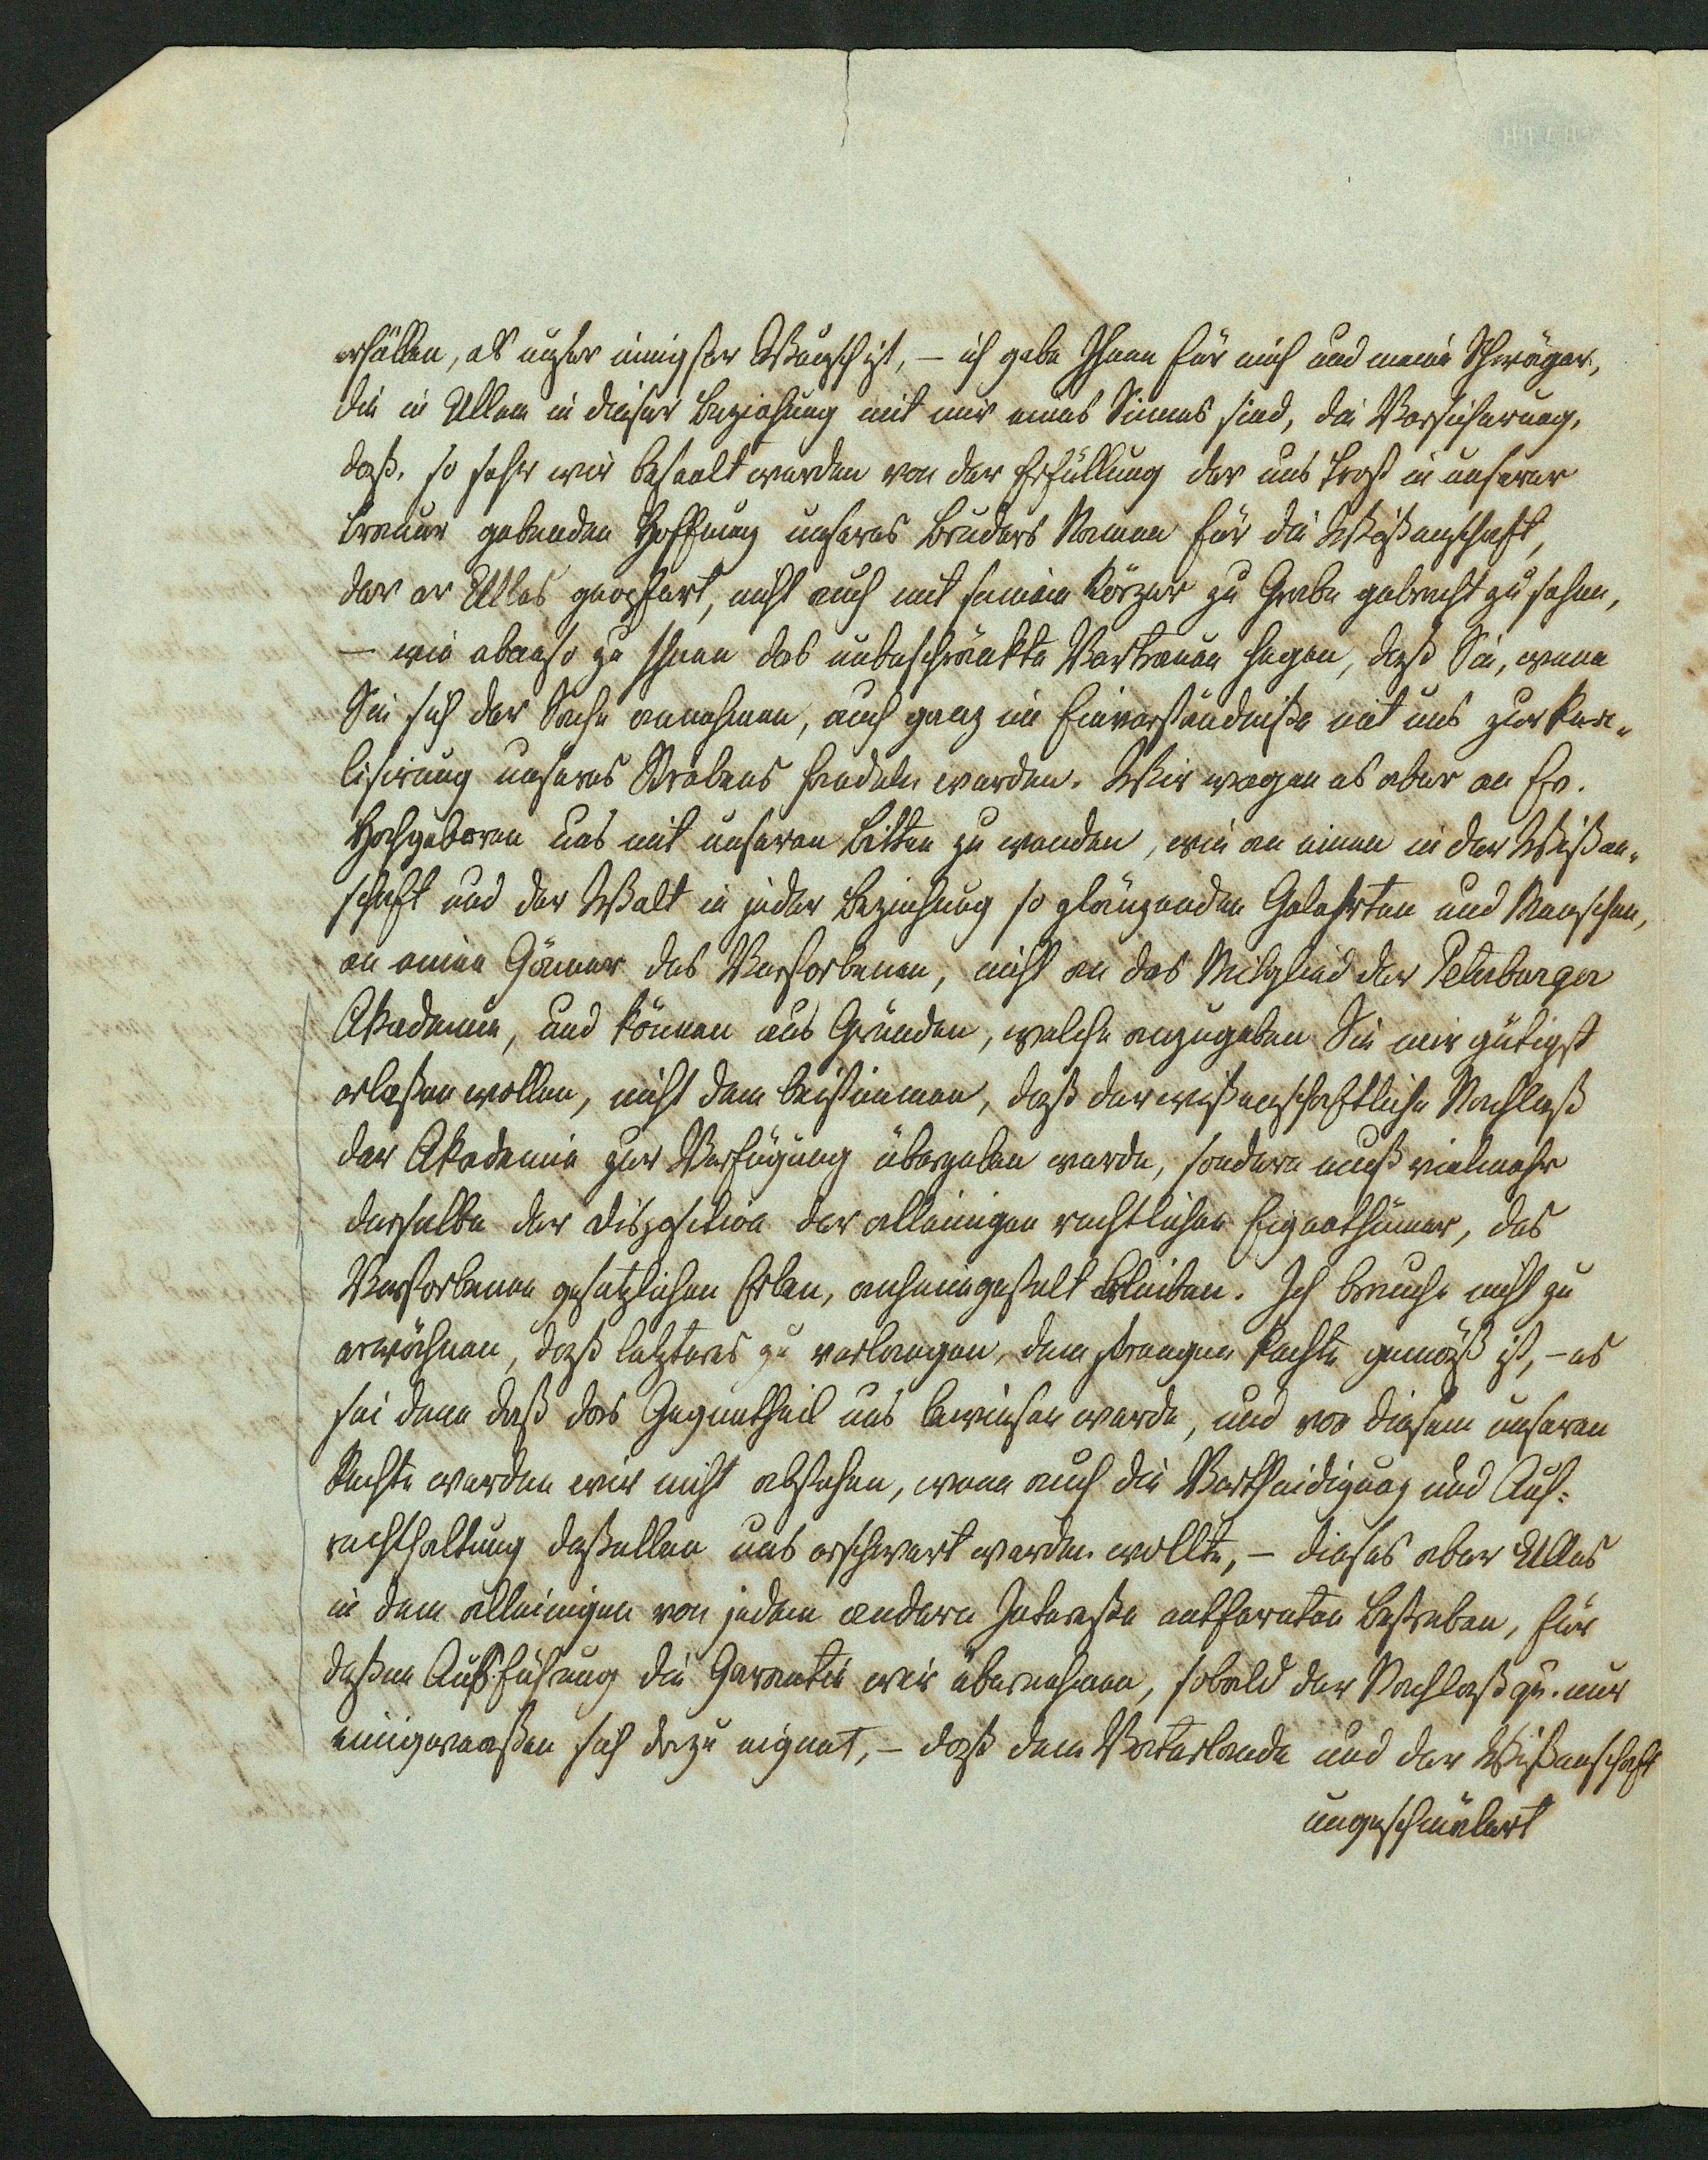 erfüllen, als unser innigster Wunsch ist, – ich gebe Ihnen für mich und meine Schwäger,
die in Allem in dieser Beziehung mit mir eines Sinnes sind, die Versicherung,
daß, so sehr wir beseelt werden von der Erfüllung der uns Trost in unserer
Trauer gebenden Hoffnung unseres Bruders Namen für die Wißenschaft,
der er Alles geopfert, nicht auch mit seinem Körper zu Grabe gebracht zu sehen,
– wir ebenso zu Ihnen das unbeschränkte Vertrauen hegen, daß Sie, wenn
Sie sich der Sache annehmen, auch ganz im Einverständniße mit uns zur Rea„
lisirung unseres Strebens handeln werden. Wir wagen es aber an Ew.
Hochgeboren uns mit unseren Bitten zu wenden, wie an einen in der Wißen„
schaft und der Welt in jeder Beziehung so glänzenden Gelehrten und Menschen,
an einen Gönner des Verstorbenen, nicht an das Mitglied der Petersburger
Akademie, und können aus Gründen, welche anzugeben Sie mir gütigst
erlaßen wollen, nicht dem beistimmen, daß der wißenschaftliche Nachlaß
der Akademie zur Verfügung übergeben werde, sondern muß vielmehr
derselbe der Disposition der alleinigen rechtlichen Eigenthümer, des
Verstorbenen gesetzlichen Erben, anheimgestelt bleiben. Ich brauche nicht zu
erwähnen, daß letzteres zu verlangen, dem strengen Rechte gemäß ist, – es
sei denn daß das Gegentheil uns bewiesen werde, und von diesem unseren
Rechte werden wir nicht abstehen, wenn auch die Vertheidigung und Auf=
rechthaltung deßelben uns erschwert werden wollte, – dieses aber Alles
in dem alleinigen von jedem andern Intereße entfernten Bestreben, für
deßen Ausführung die Garantie wir übernehmen, sobald der Nachlaß nur
einigermaßen sich dazu eignet, – daß dem Vaterlande und der Wißenschaft
ungeschmälert